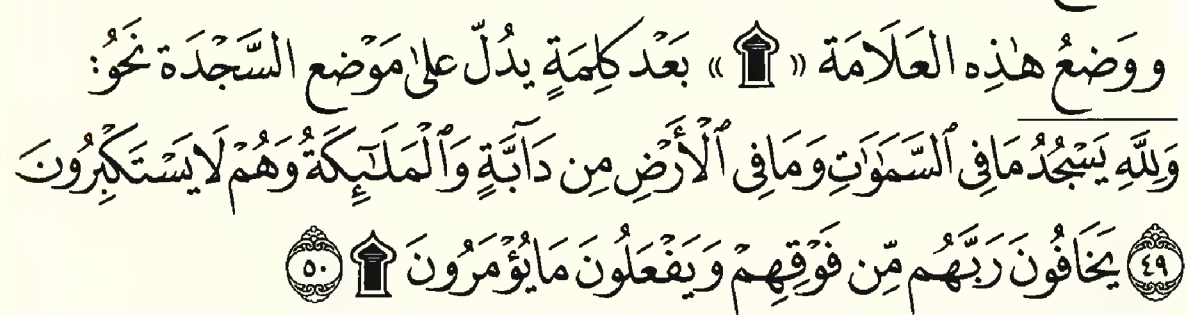 ووَضعُ هٰذِه العَلَامَة «۩» بَعْد كَلِمَةٍ يدُلّ علىٰ مَوْضع السَّجْدَة نَحْوُ:
وَلِلَّهِ يَسْجُدُ مَا فِى ٱلسَّمَٰوَٰتِ وَمَا فِى ٱلْأَرْضِ مِن دَآبَّةٍ وَٱلْمَلَٰٓئِكَةُ وَهُمْ لَا يَسْتَكْبِرُونَ
﴿٤٩﴾ يَخَافُونَ رَبَّهُم مِّن فَوْقِهِمْ وَيَفْعَلُونَ مَا يُؤْمَرُونَ ۩ ﴿٥٠﴾